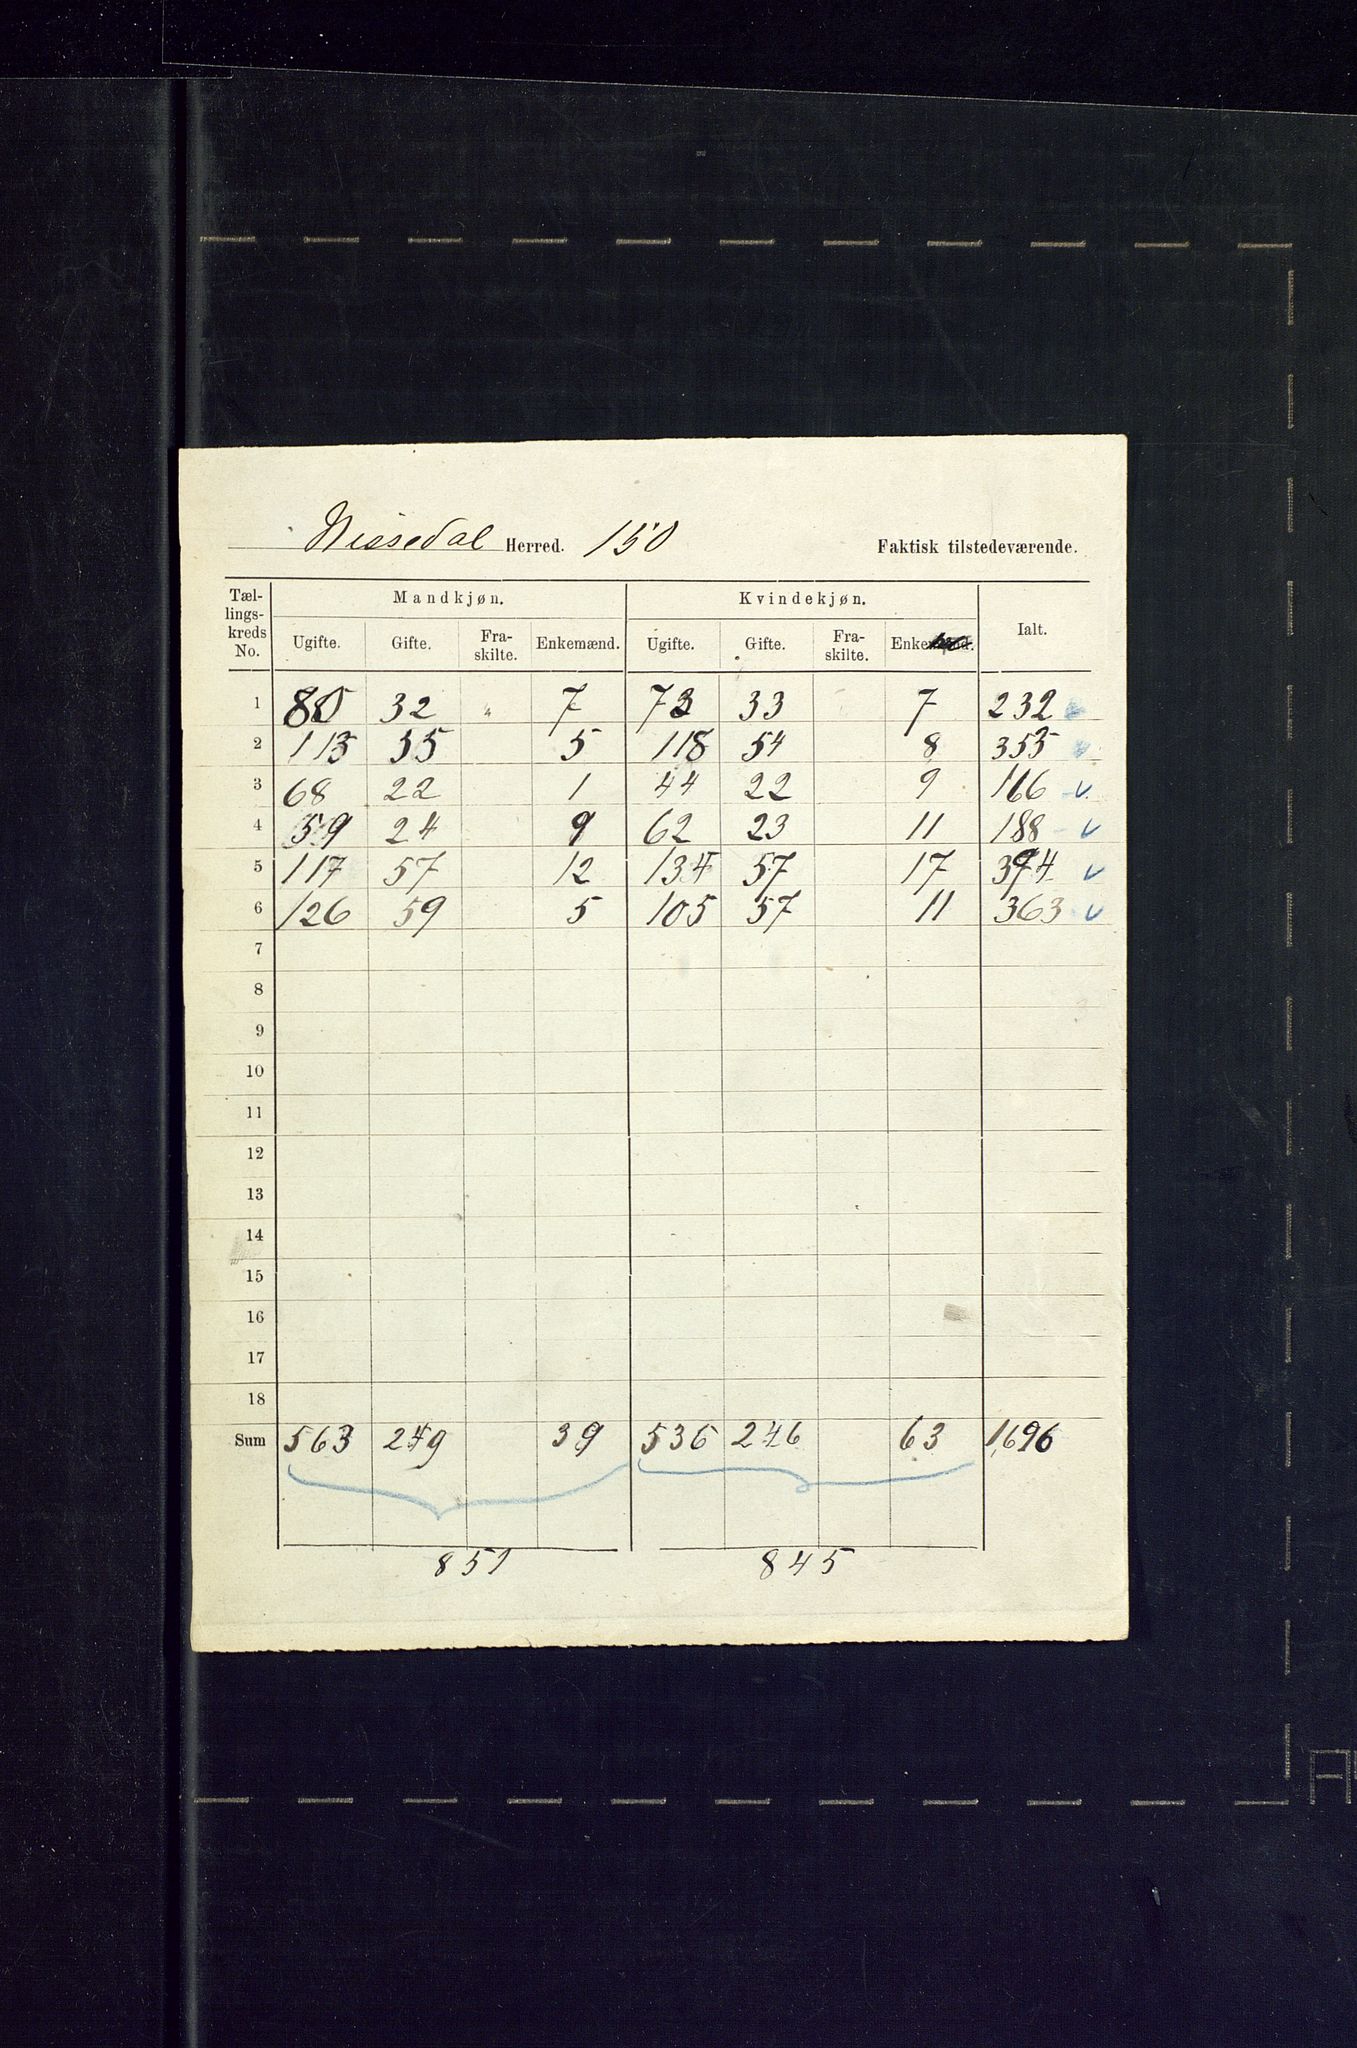 Nissedal Herred. 150 Faktisk tilstedeværende.
Tæl-
lings-
kreds
No.
Mandkjøn. Kvindekjøn. Ialt.
Ugifte. Gifte. Fra-
skilte. Enkemænd. Ugifte. Gifte. Fra-
skilte.
1 80 32 " 7 73 33 7 232 v
2 113 55 5 118 54 8 353 v
3 68 22 1 44 22 9 166 v
4 59 24 9 62 23 11 188 v
5 117 57 12 134 57 17 394 v
6 126 59 5 105 57 11 363 v
7
8
9
10
11
12
13
14
15
16
17
18
Sum 563 249 39 536 246 63 1,696
851 845